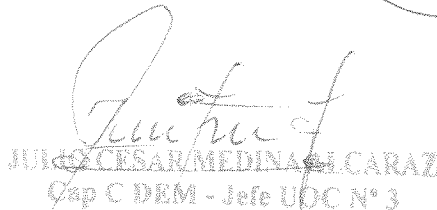 JULIO CESAR MEDINA ALCARAZ
Cap C DEM - Jefe UOC N° 3